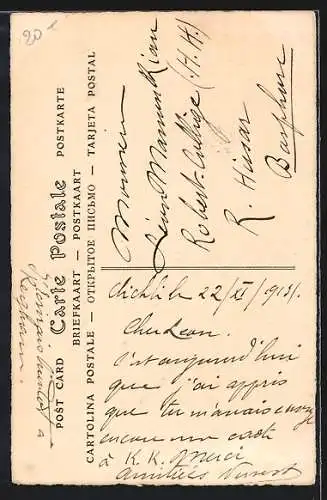 20-
Carte Postale
POST CARD POSTKARTE
BRIEFKAART — POSTKAART
CARTOLINA POSTALE — ОТКРЫТОЕ ПИСЬМО — TARJETA POSTAL
Monsieur
Robert-College (H.H.)
R. Hissar
Bosphore
22/XI/1913.
Cher Léon.
C'est aujourd'hui
que j'ai appris
que tu m'avais
encore une carte
à K.K. Merci
Amitiés